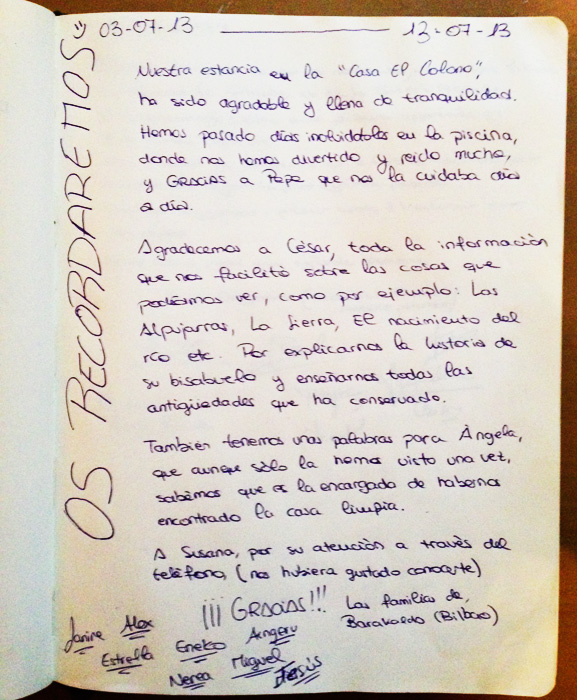 03-07-13 ——— 13-07-13
OS RECORDAREMOS
Nuestra estancia en la "Casa El Colono",
ha sido agradable y llena de tranquilidad.
Hemos pasado días inolvidables en la piscina,
donde nos hemos divertido y reido mucho,
y GRACIAS a Pepe que nos la cuidaba día
a día.
Agradecemos a César, toda la información
que nos facilitó sobre las cosas que
podíamos ver, como por ejemplo: Las
Alpujarras, La Sierra, El nacimiento del
río etc. Por explicarnos la historia de
su bisabuelo y enseñarnos todas las
antigüedades que ha conservado.
También tenemos unas palabras para Ángela,
que aunque sólo la hemos visto una vez,
sabemos que es la encargada de habernos
encontrado la casa limpia.
A Susana, por su atención a través del
teléfono, (nos hubiera gustado conocerte)
¡¡¡GRACIAS!!!
Las familias de,
Barakaldo (Bilbao)
Janire Alex
Estrella Eneko Aingeru
Nerea Miguel Jesús